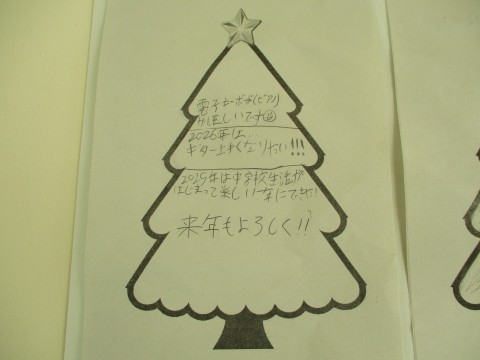 電子キーボード(ピアノ)
がほしいです
2026年は...
ギター上手くなりたい!!!
2025年は中学校生活が
はじまって楽しい年にできた!
来年もよろしく!!